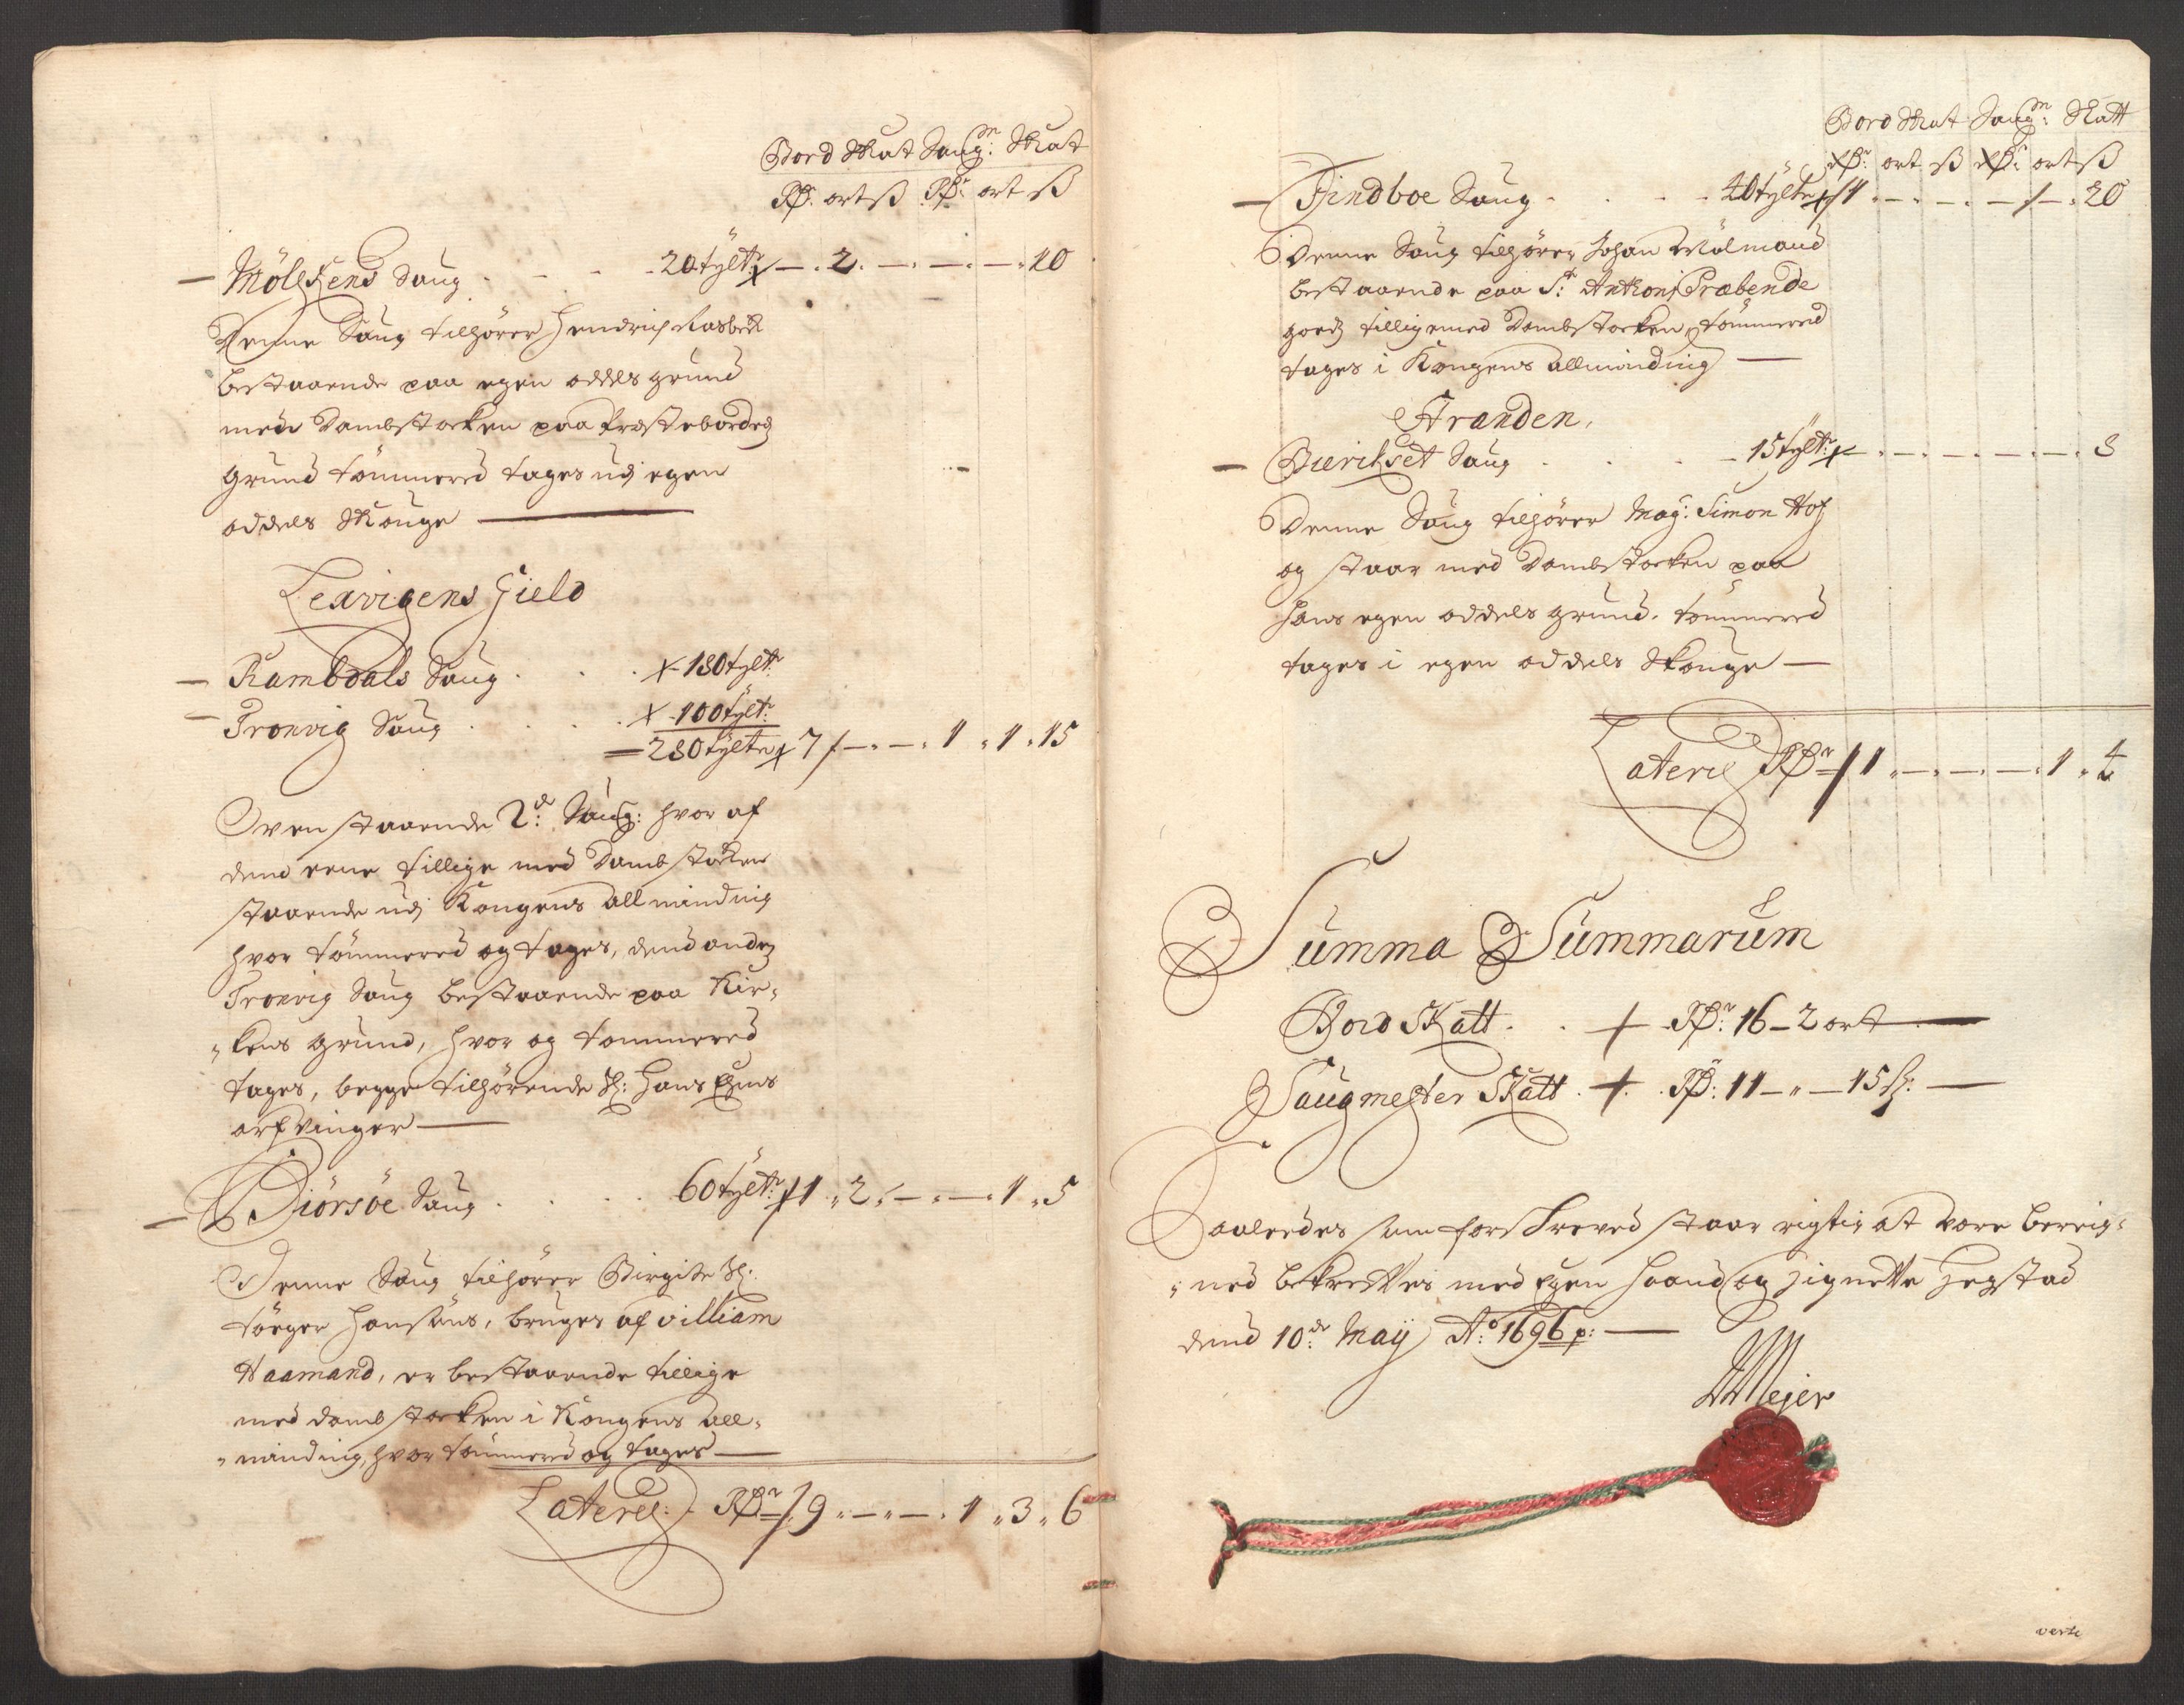 Bord Skat Saugm: Skat
Rdr: ort ß Rdr: ort ß
Mölskens Saug - - - 20 tylt: - . 2 . - . - . - . 10
Denne Saug tilhører Hendrich
bestaaende paa egen oddels grund
med Dambstocken paa Præstebordetz
grund tömmered tages udj egen
oddels Skouge
Lexvigens Gield
Rambdals Saug . . . 180 tylt:
Tronvig Saug . . . . 100 tylt:
280 tylter 7 - . - . 1 . 1 . 15
Ovenstaaende 2de: Saug: hvor af
dend eene tillige med Dambstocken
staaende udj Kongens allminding
hvor tömmered og tages, dend anden
Tronvig Saug bestaaende paa Kir-
kens grund, hvor og tömmered
tages, begge tilhørende Sl: Hans
arfvinger
Diörsöe Saug . . . . 60 tylt: 1 . 2 . - . - . 1 . 5
Denne Saug tilhører Birgite Sl:
Törger Hansens, bruges af William
Haamand, er bestaaende tillige
med dambstocken i Kongens all-
minding, hvor tömmered og tages
Lateris: Rdr 9 . - . - . 1 . 3 . 6
Bord Skat Saugm: Skatt
Rdr: ort ß Rdr: ort ß
Findboe Saug - . - . 40 tylter 1 . - . - . - . 20
Denne Saug tilhører Johan Wolmand
bestaaende paa St: Anthonj Præbende
godtz tilligemed Dambstocken, tömmered
tages i Kongens allminding
Stranden,
Bierikset Saug . . . 15 tylt: - . - . - . - . - . 8
Denne Saug tilhører Mag: Simon Hof
og staar med Dambstocken paa
hans egen oddels grund. tömmered
tages i egen oddels Skouge
Lateris Rdr 1 . - . - . - . 1 . 4
Summa Summarum
Bord Skatt . . Rdr: 16 - 2 ort
Saugmester Skatt . Rdr: 11 - " - 15 s:
Saaledes som forskreved staar rigtig at være bereig-
ned bekreftes med Egen haand og Zignette Hegstad
dend 10de: Maij Ao: 1696 p:
Mejer
verte